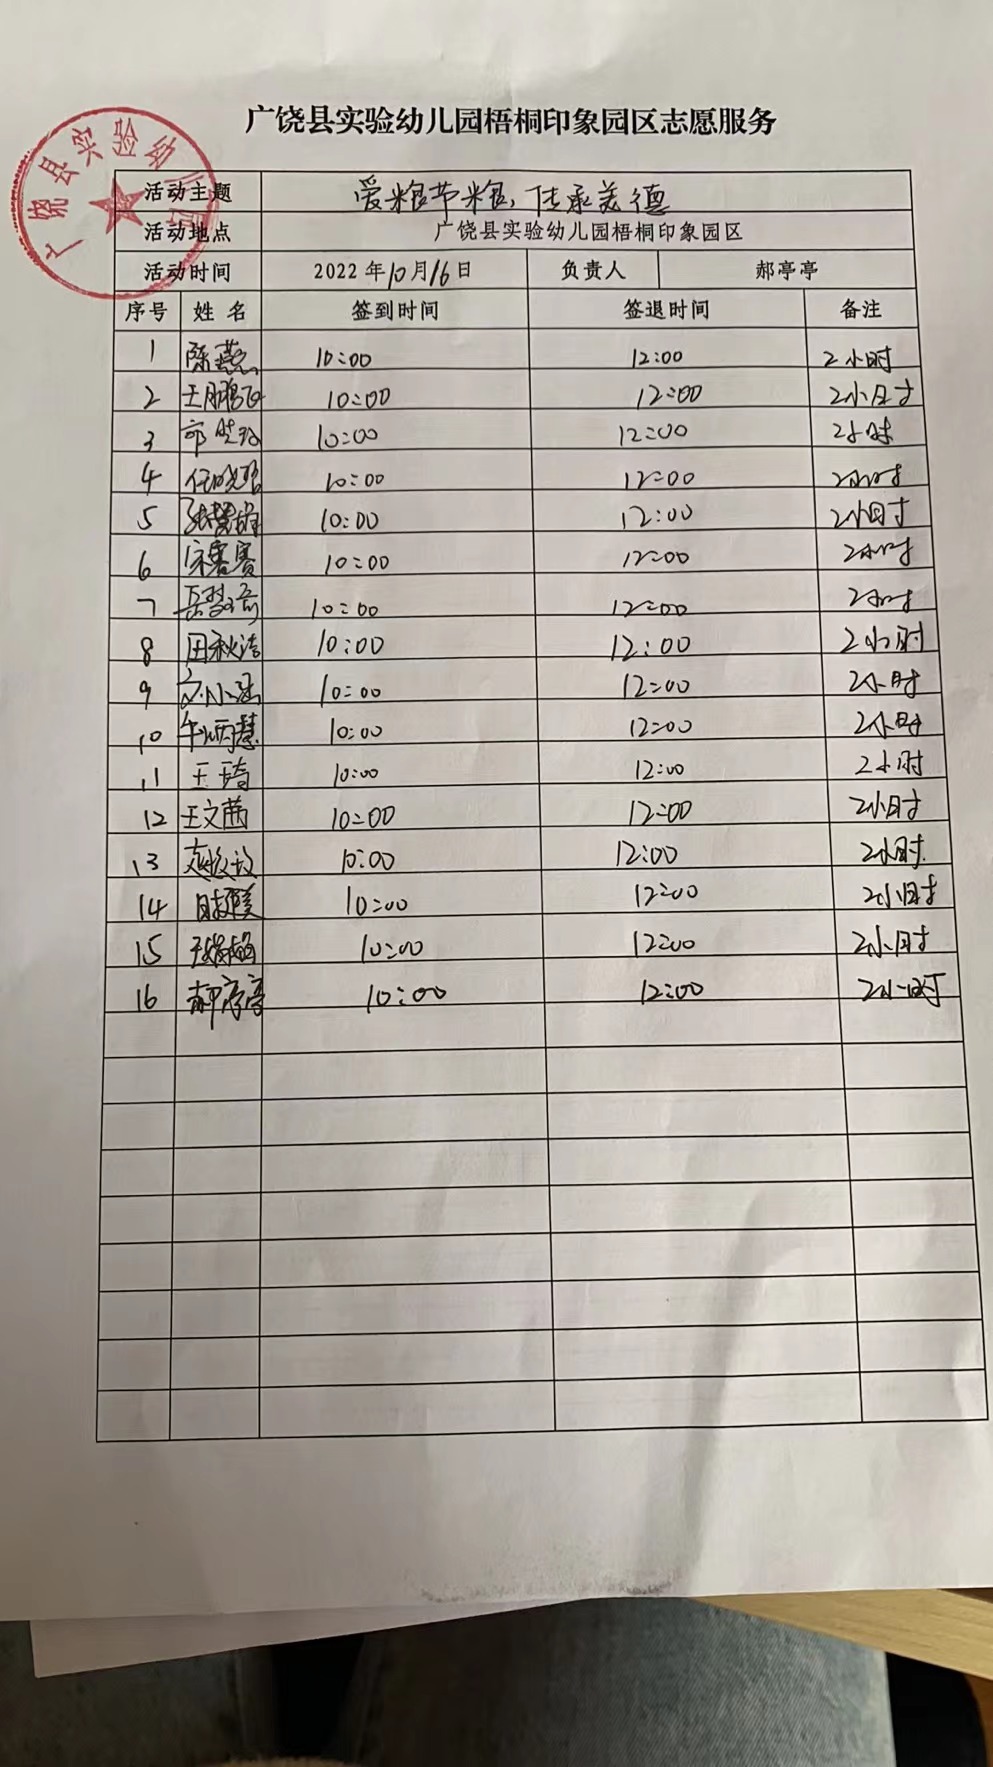 广饶县实验幼儿园梧桐印象园区志愿服务
广饶县实验幼儿园
活动主题 爱粮节粮,传承美德
活动地点 广饶县实验幼儿园梧桐印象园区
活动时间 2022年10月16日 负责人 郝亭亭
序号 姓名 签到时间 签退时间 备注
1 陈燕 10:00 12:00 2小时
2 王鹏 10:00 12:00 2小时
3 10:00 12:00 2小时
4 任晓 10:00 12:00 2小时
5 张慧 10:00 12:00 2小时
6 宋赛赛 10:00 12:00 2小时
7 10:00 12:00 2小时
8 田秋洁 10:00 12:00 2小时
9 小涵 10:00 12:00 2小时
10 牛炳慧 10:00 12:00 2小时
11 王琦 10:00 12:00 2小时
12 王文茜 10:00 12:00 2小时
13 10:00 12:00 2小时
14 10:00 12:00 2小时
15 10:00 12:00 2小时
16 郝亭亭 10:00 12:00 2小时